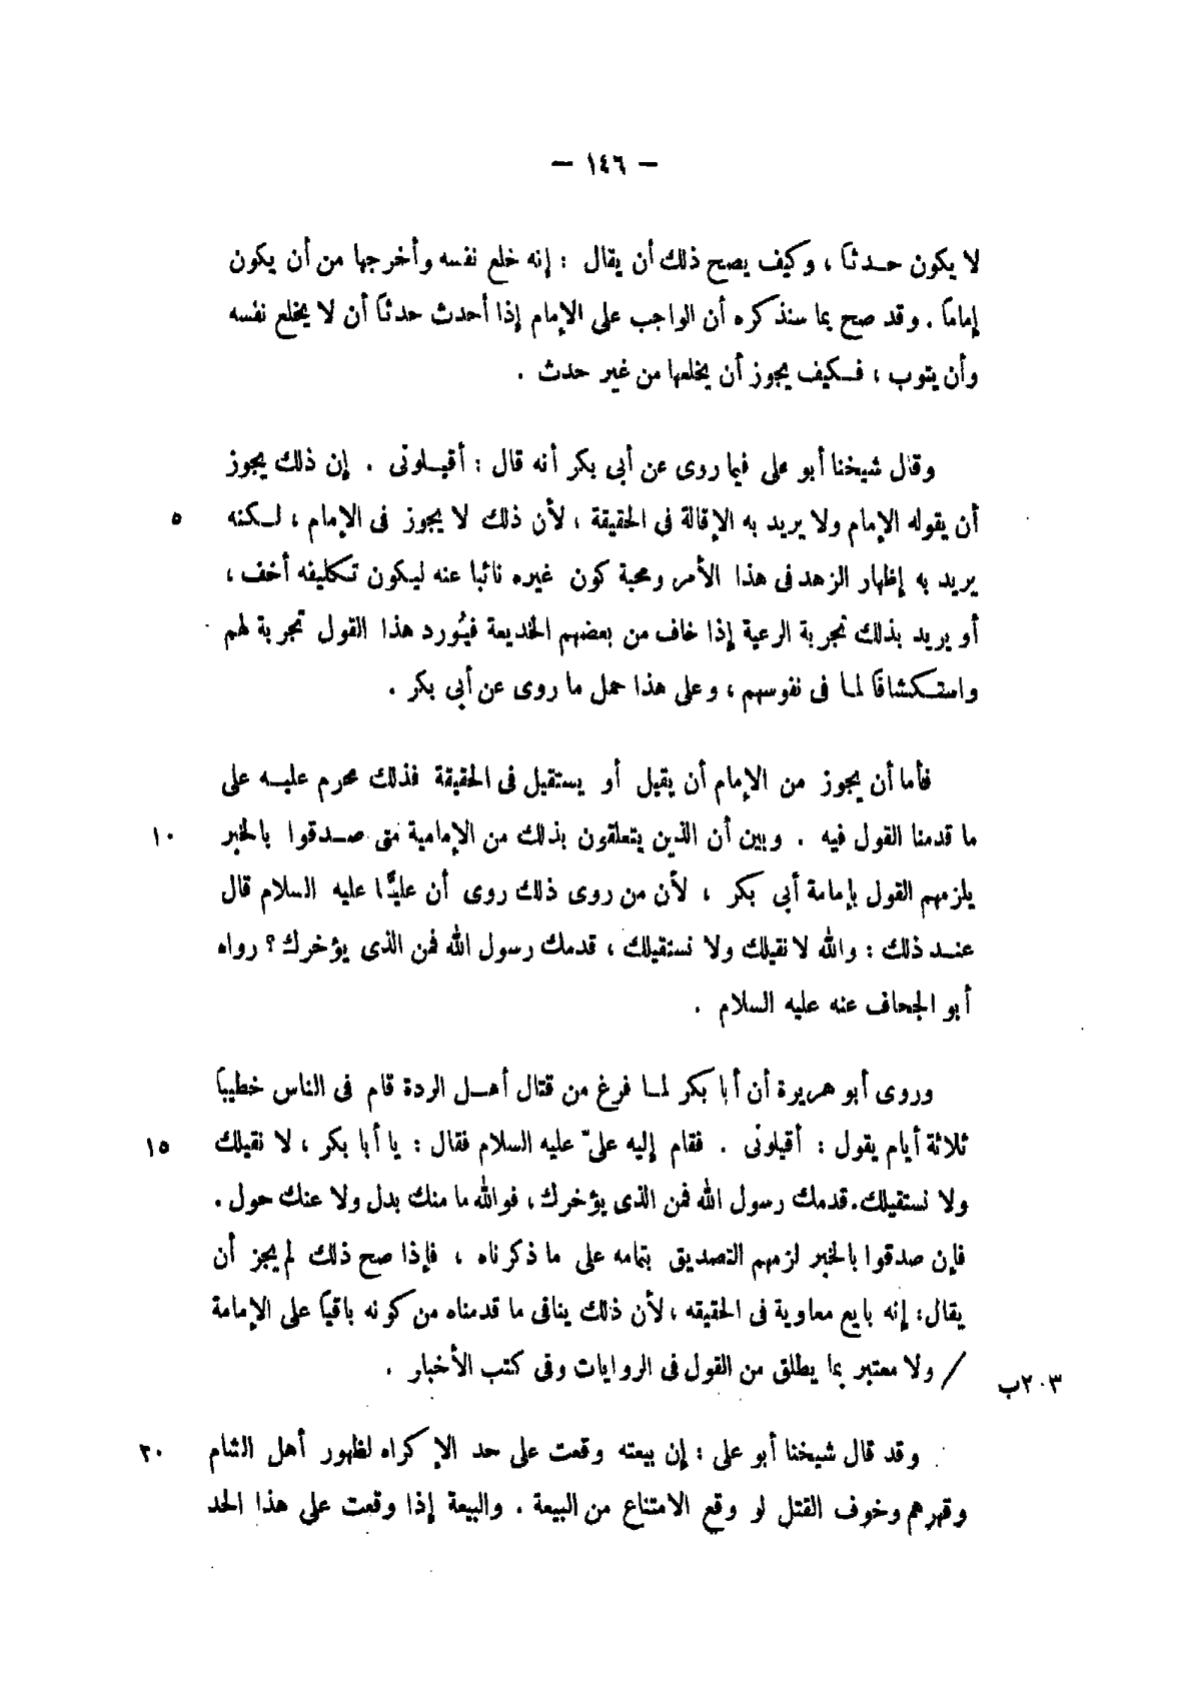 — ١٤٦ —
لا يكون حدثاً ، وكيف يصح ذلك أن يقال : إنه خلع نفسه وأخرجها من أن يكون
إماماً . وقد صح بما سنذكره أن الواجب على الإمام إذا أحدث حدثاً أن لا يخلع نفسه
وأن يتوب ، فكيف يجوز أن يخلعها من غير حدث .
وقال شيخنا أبو على فيما روى عن أبى بكر أنه قال : أقيلونى . إن ذلك يجوز
أن يقوله الإمام ولا يريد به الإقالة فى الحقيقة ، لأن ذلك لا يجوز فى الإمام ، لكنه ٥
يريد به إظهار الزهد فى هذا الأمر ومحبة كون غيره نائبا عنه ليكون تكليفه أخف ،
أو يريد بذلك تجربة الرعية إذا خاف من بعضهم الخديعة فيُورد هذا القول تجربة لهم
واستكشافاً لما فى نفوسهم ، وعلى هذا حمل ما روى عن أبى بكر .
فأما أن يجوز من الإمام أن يقيل أو يستقيل فى الحقيقة فذلك محرم عليه على
ما قدمنا القول فيه . وبين أن الذين يتعلقون بذلك من الإمامية متى صدقوا بالخبر ١٠
يلزمهم القول بإمامة أبى بكر ، لأن من روى ذلك روى أن عليًّا عليه السلام قال
عند ذلك : والله لا نقيلك ولا نستقيلك ، قدمك رسول الله فمن الذى يؤخرك ؟ رواه
أبو الجحاف عنه عليه السلام .
وروى أبو هريرة أن أبا بكر لما فرغ من قتال أهل الردة قام فى الناس خطيباً
ثلاثة أيام يقول : أقيلونى . فقام إليه علىّ عليه السلام فقال : يا أبا بكر ، لا نقيلك ١٥
ولا نستقيلك. قدمك رسول الله فمن الذى يؤخرك ، فوالله ما منك بدل ولا عنك حول .
فإن صدقوا بالخبر لزمهم التصديق بتمامه على ما ذكرناه ، فإذا صح ذلك لم يجز أن
يقال: إنه بايع معاوية فى الحقيقه ، لأن ذلك ينافى ما قدمناه من كونه باقياً على الإمامة
٢٠٣ب / ولا معتبر بما يطلق من القول فى الروايات وفى كتب الأخبار .
وقد قال شيخنا أبو على : إن بيعته وقعت على حد الإكراه لظهور أهل الشام ٢٠
وقهرهم وخوف القتل لو وقع الامتناع من البيعة . والبيعة إذا وقعت على هذا الحد